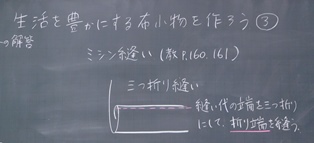 生活を豊かにする布小物を作ろう③
→解答
ミシン縫い(教P.160.161)
三つ折り縫い
縫い代の端を三つ折り
にして、折り端を縫う。